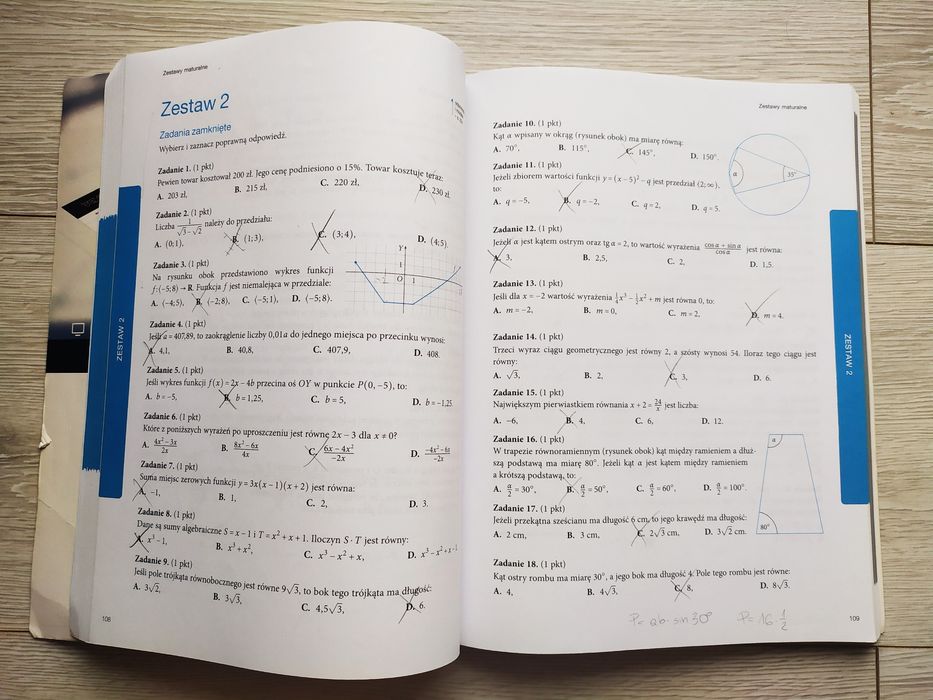 Zestawy maturalne
Zestaw 2
Zadania zamknięte
Wybierz i zaznacz poprawną odpowiedź.
Zadanie 1. (1 pkt)
Pewien towar kosztował 200 zł. Jego cenę podniesiono o 15%. Towar kosztuje teraz:
A. 203 zł, B. 215 zł, C. 220 zł, D. 230 zł.
Zadanie 2. (1 pkt)
Liczba 1/(√3−√2) należy do przedziału:
A. (0; 1), B. (1; 3), C. (3; 4), D. (4; 5).
Zadanie 3. (1 pkt)
Na rysunku obok przedstawiono wykres funkcji
f: ⟨−5; 8) → R. Funkcja f jest niemalejąca w przedziale:
A. ⟨−4; 5), B. ⟨−2; 8), C. ⟨−5; 1), D. ⟨−5; 8).
Y
1
−2 O 1
Zadanie 4. (1 pkt)
Jeśli a = 407,89, to zaokrąglenie liczby 0,01a do jednego miejsca po przecinku wynosi:
A. 4,1, B. 40,8, C. 407,9, D. 408.
Zadanie 5. (1 pkt)
Jeśli wykres funkcji f(x) = 2x − 4b przecina oś OY w punkcie P(0, −5), to:
A. b = −5, B. b = 1,25, C. b = 5, D. b = −1,25.
Zadanie 6. (1 pkt)
Które z poniższych wyrażeń po uproszczeniu jest równe 2x − 3 dla x ≠ 0?
A. (4x² − 3x)/2x B. (8x² − 6x)/4x C. (6x − 4x²)/−2x D. (−4x² − 6x)/−2x
Zadanie 7. (1 pkt)
Suma miejsc zerowych funkcji y = 3x(x − 1)(x + 2) jest równa:
A. −1, B. 1, C. 2, D. 3.
Zadanie 8. (1 pkt)
Dane są sumy algebraiczne S = x − 1 i T = x² + x + 1. Iloczyn S · T jest równy:
A. x³ − 1, B. x³ + x², C. x³ − x² + x, D. x³ − x² + x − 1
Zadanie 9. (1 pkt)
Jeśli pole trójkąta równobocznego jest równe 9√3, to bok tego trójkąta ma długość:
A. 3√2, B. 3√3, C. 4,5√3, D. 6.
108
ZESTAW 2
Zestawy maturalne
Zadanie 10. (1 pkt)
Kąt α wpisany w okrąg (rysunek obok) ma miarę równą:
A. 70°, B. 115°, C. 145°, D. 150°.
α 35°
Zadanie 11. (1 pkt)
Jeżeli zbiorem wartości funkcji y = (x − 5)² − q jest przedział ⟨2; ∞),
to:
A. q = −5, B. q = −2, C. q = 2, D. q = 5.
Zadanie 12. (1 pkt)
Jeżeli α jest kątem ostrym oraz tg α = 2, to wartość wyrażenia (cos α + sin α)/cos α jest równa:
A. 3, B. 2,5, C. 2, D. 1,5.
Zadanie 13. (1 pkt)
Jeśli dla x = −2 wartość wyrażenia ¼x³ − ½x² + m jest równa 0, to:
A. m = −2, B. m = 0, C. m = 2, D. m = 4.
Zadanie 14. (1 pkt)
Trzeci wyraz ciągu geometrycznego jest równy 2, a szósty wynosi 54. Iloraz tego ciągu jest
równy:
A. √3, B. 2, C. 3, D. 6.
Zadanie 15. (1 pkt)
Największym pierwiastkiem równania x + 2 = 24/x jest liczba:
A. −6, B. 4, C. 6, D. 12.
Zadanie 16. (1 pkt)
W trapezie równoramiennym (rysunek obok) kąt między ramieniem a dłuż-
szą podstawą ma miarę 80°. Jeżeli kąt α jest kątem między ramieniem
a krótszą podstawą, to:
A. α/2 = 30°, B. α/2 = 50°, C. α/2 = 60°, D. α/2 = 100°.
α
80°
Zadanie 17. (1 pkt)
Jeżeli przekątna sześcianu ma długość 6 cm, to jego krawędź ma długość:
A. 2 cm, B. 3 cm, C. 2√3 cm, D. 3√2 cm.
Zadanie 18. (1 pkt)
Kąt ostry rombu ma miarę 30°, a jego bok ma długość 4. Pole tego rombu jest równe:
A. 4, B. 4√3, C. 8, D. 8√3.
P = ab · sin 30° P = 16 · ½
109
ZESTAW 2